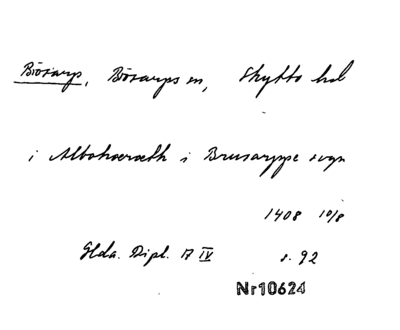 Börarp, Börarps sn, Skytts hd
i Albohæræth i Brusarppe sogn
1408 10/8
Glda. Dipl. B IV s. 92
Nr10624